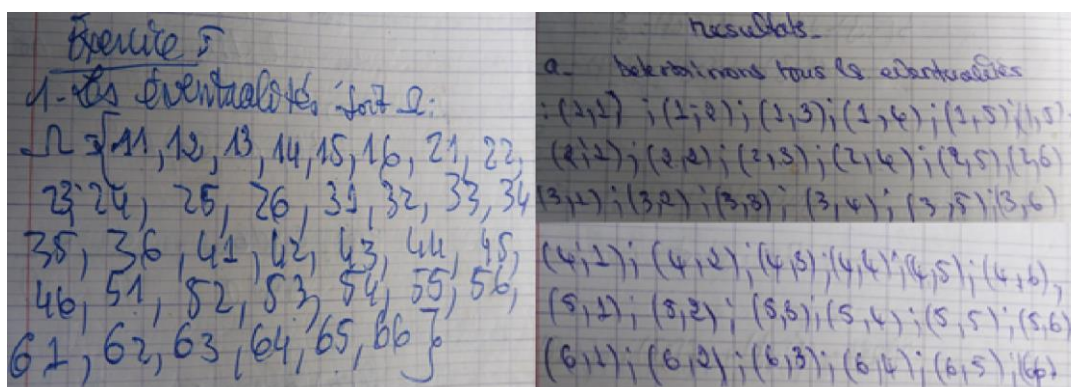 Exercice I
1- Les éventualités, soit Ω:
Ω = {11, 12, 13, 14, 15, 16, 21, 22,
23, 24, 25, 26, 31, 32, 33, 34
35, 36, 41, 42, 43, 44, 45,
46, 51, 52, 53, 54, 55, 56,
61, 62, 63, 64, 65, 66}
resultats_
a- Determinons tous les eventualités
: (1,1) ; (1,2) ; (1,3) ; (1,4) ; (1,5) ; (1,5)
(2,1) ; (2,2) ; (2,3) ; (2,4) ; (2,5) (2,6)
(3,1) ; (3,2) ; (3,3) ; (3,4) ; (3,5) ; (3,6)
(4,1) ; (4,2) ; (4,3) ; (4,4) ; (4,5) ; (4,6),
(5,1) ; (5,2) ; (5,3) ; (5,4) ; (5,5) ; (5,6)
(6,1) ; (6,2) ; (6,3) ; (6,4) ; (6,5) ; (6,6)